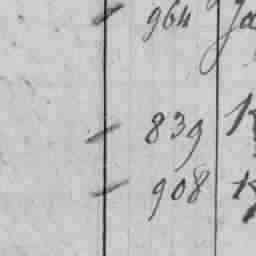 964 Ja
839
908